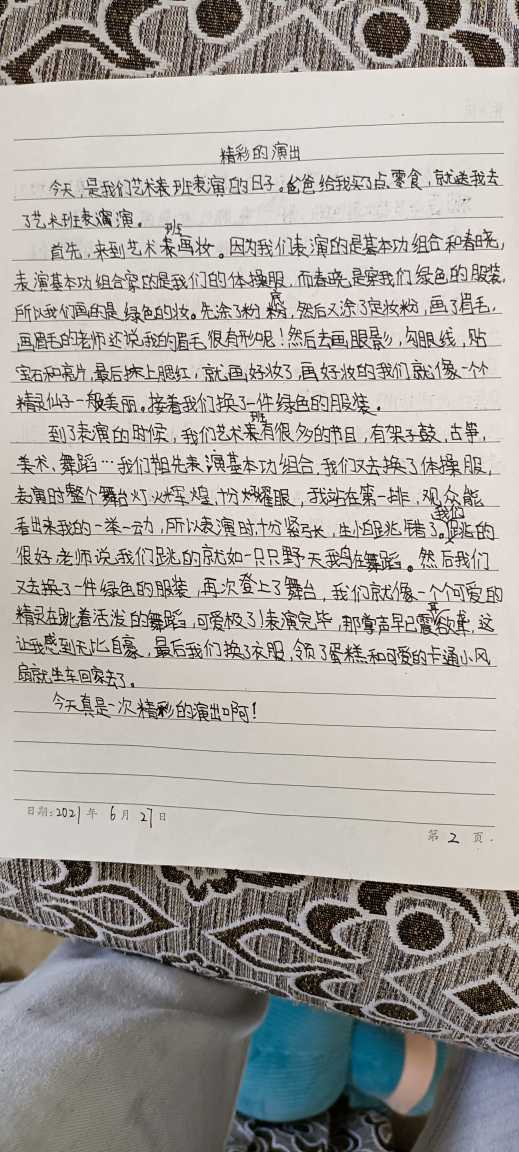 精彩的演出
今天,是我们艺术表班表演的日子。爸爸给我买了点零食,就送我去
了艺术班表演。
首先,来到艺术班画妆。因为我们表演的是基本功组合和春晓,
表演基本功组合穿的是我们的体操服,而春晓是穿我们绿色的服装,
所以我们画的是绿色的妆。先涂了粉底,然后又涂了定妆粉,画了眉毛,
画眉毛的老师还说我的眉毛很有形呢!然后去画眼影,勾眼线,贴
宝石和亮片,最后抹上腮红,就画好妆了,画好妆的我们就像一个个
精灵仙子一般美丽。接着我们换了一件绿色的服装。
到了表演的时候,我们艺术班有很多的节目,有架子鼓,古筝,
美术,舞蹈…我们组先表演基本功组合,我们又去换了体操服,
表演时整个舞台灯火辉煌,十分耀眼,我站在第一排,观众能
看出来我的一举一动,所以表演时十分紧张,生怕跳错了。我们跳的
很好,老师说我们跳的就如一只只野天鹅在舞蹈。然后我们
又去换了一件绿色的服装,再次登上了舞台,我们就像一个个可爱的
精灵在跳着活泼的舞蹈,可爱极了!表演完毕,那掌声早已震耳欲聋,这
让我感到无比自豪,最后我们换了衣服,领了蛋糕和可爱的卡通小风
扇就坐车回家去了。
今天真是一次精彩的演出啊!
日期:2021年 6月 27日
第 2 页